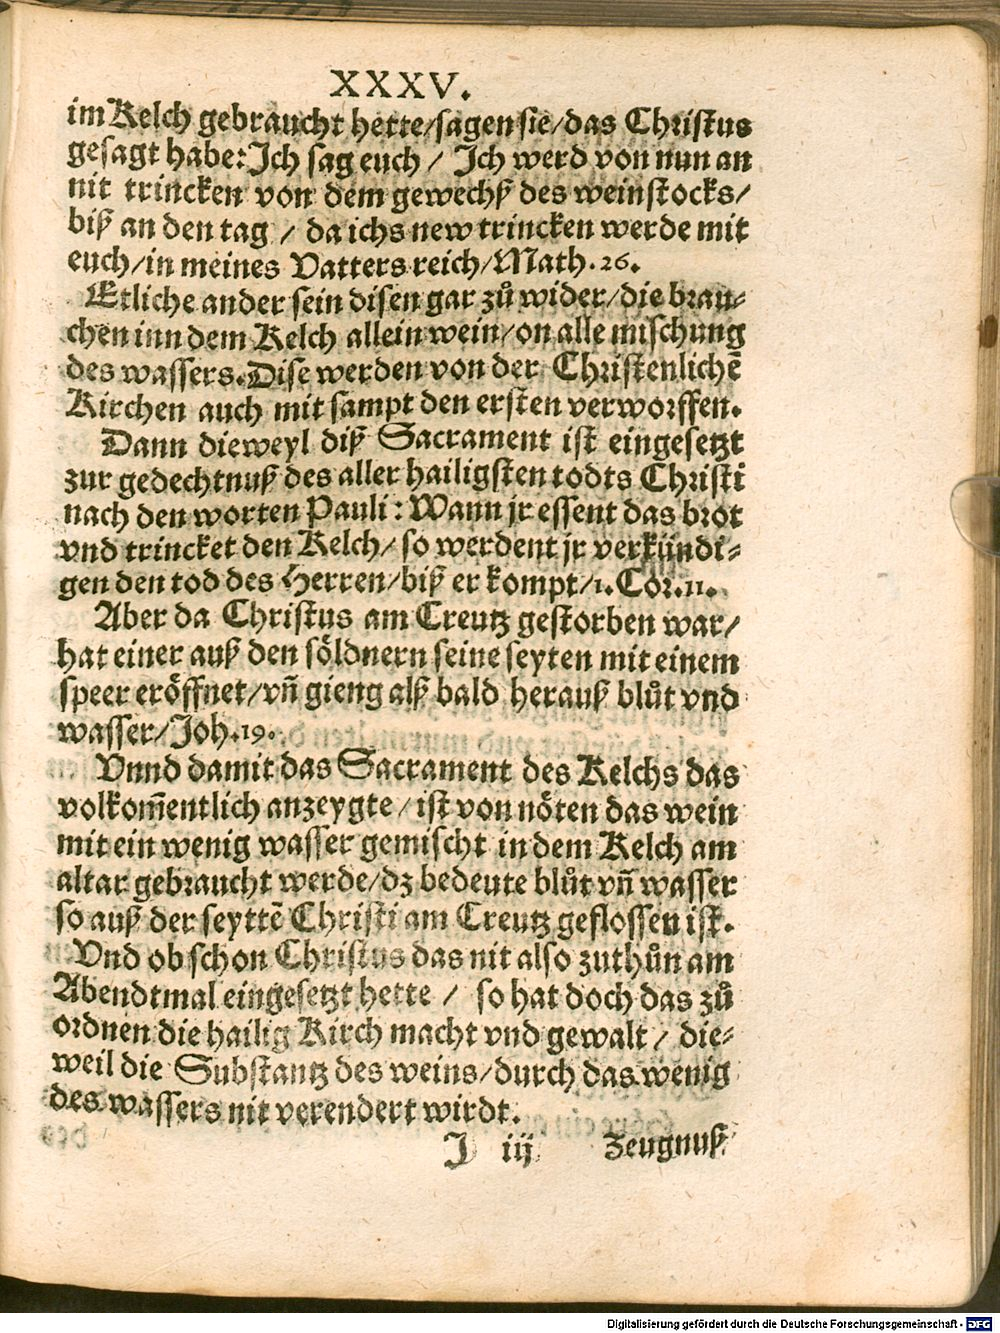 XXXV.
im Kelch gebraucht hette/sagen sie/das Christus
gesagt habe: Ich sag euch / Ich werd von nun an
nit trincken von dem gewechß des weinstocks/
biß an den tag / da ichs new trincken werde mit
euch/in meines Vatters reich/Math.26.
Etliche ander sein disen gar zů wider/die brau⸗
chen inn dem Kelch allein wein/on alle mischung
des wassers. Dise werden von der Christenlichē
Kirchen auch mit sampt den ersten verworffen.
Dann dieweyl diß Sacrament ist eingesetzt
zur gedechtnuß des aller hailigsten todts Christi
nach den worten Pauli: Wann jr essent das brot
vnd trincket den Kelch/so werdent jr verkündi⸗
gen den tod des Herren/biß er kompt/1.Cor.11.
Aber da Christus am Creutz gestorben war/
hat einer auß den söldnern seine seyten mit einem
speer eröffnet/vñ gieng alß bald herauß blůt vnd
wasser/Joh.19.
Vnnd damit das Sacrament des Kelchs das
volkom̄entlich anzeygte/ist von nöten das wein
mit ein wenig wasser gemischt in dem Kelch am
altar gebraucht werde/dz bedeute blůt vñ wasser
so auß der seyttē Christi am Creutz geflossen ist.
Vnd ob schon Christus das nit also zuthůn am
Abendtmal eingesetzt hette / so hat doch das zů
ordnen die hailig Kirch macht vnd gewalt / die⸗
weil die Substantz des weins/durch das wenig
des wassers nit verendert wirdt.
J iij Zeugnuß
Digitalisierung gefördert durch die Deutsche Forschungsgemeinschaft - DFG